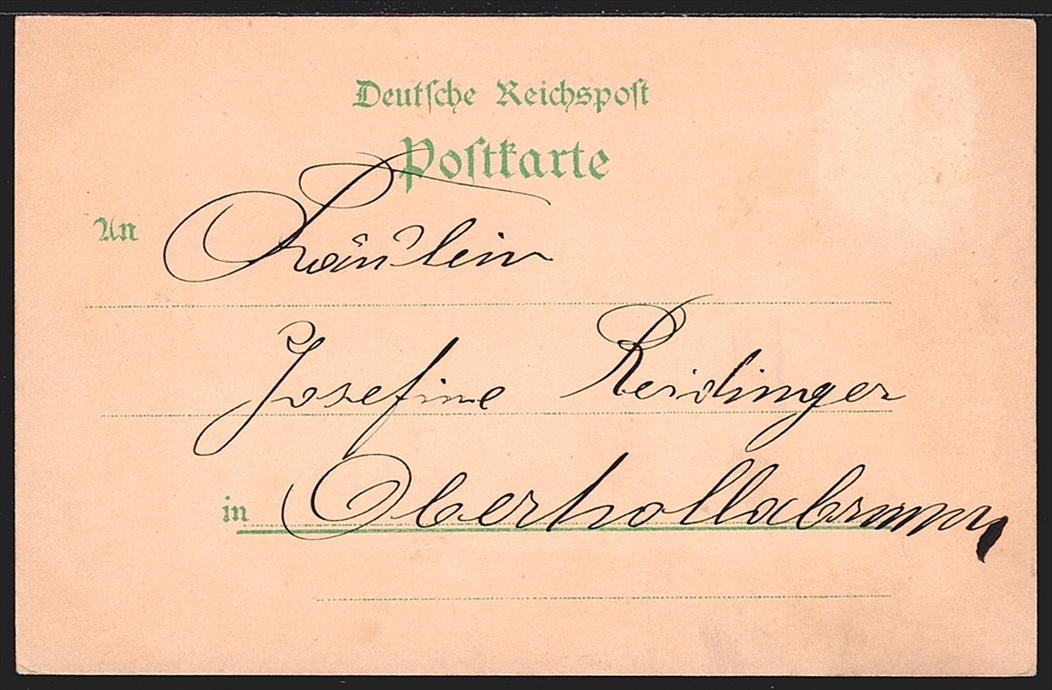 Deutsche Reichspost
Postkarte
An Fräulein
Josefine Reidinger
in Oberhollabrunn,